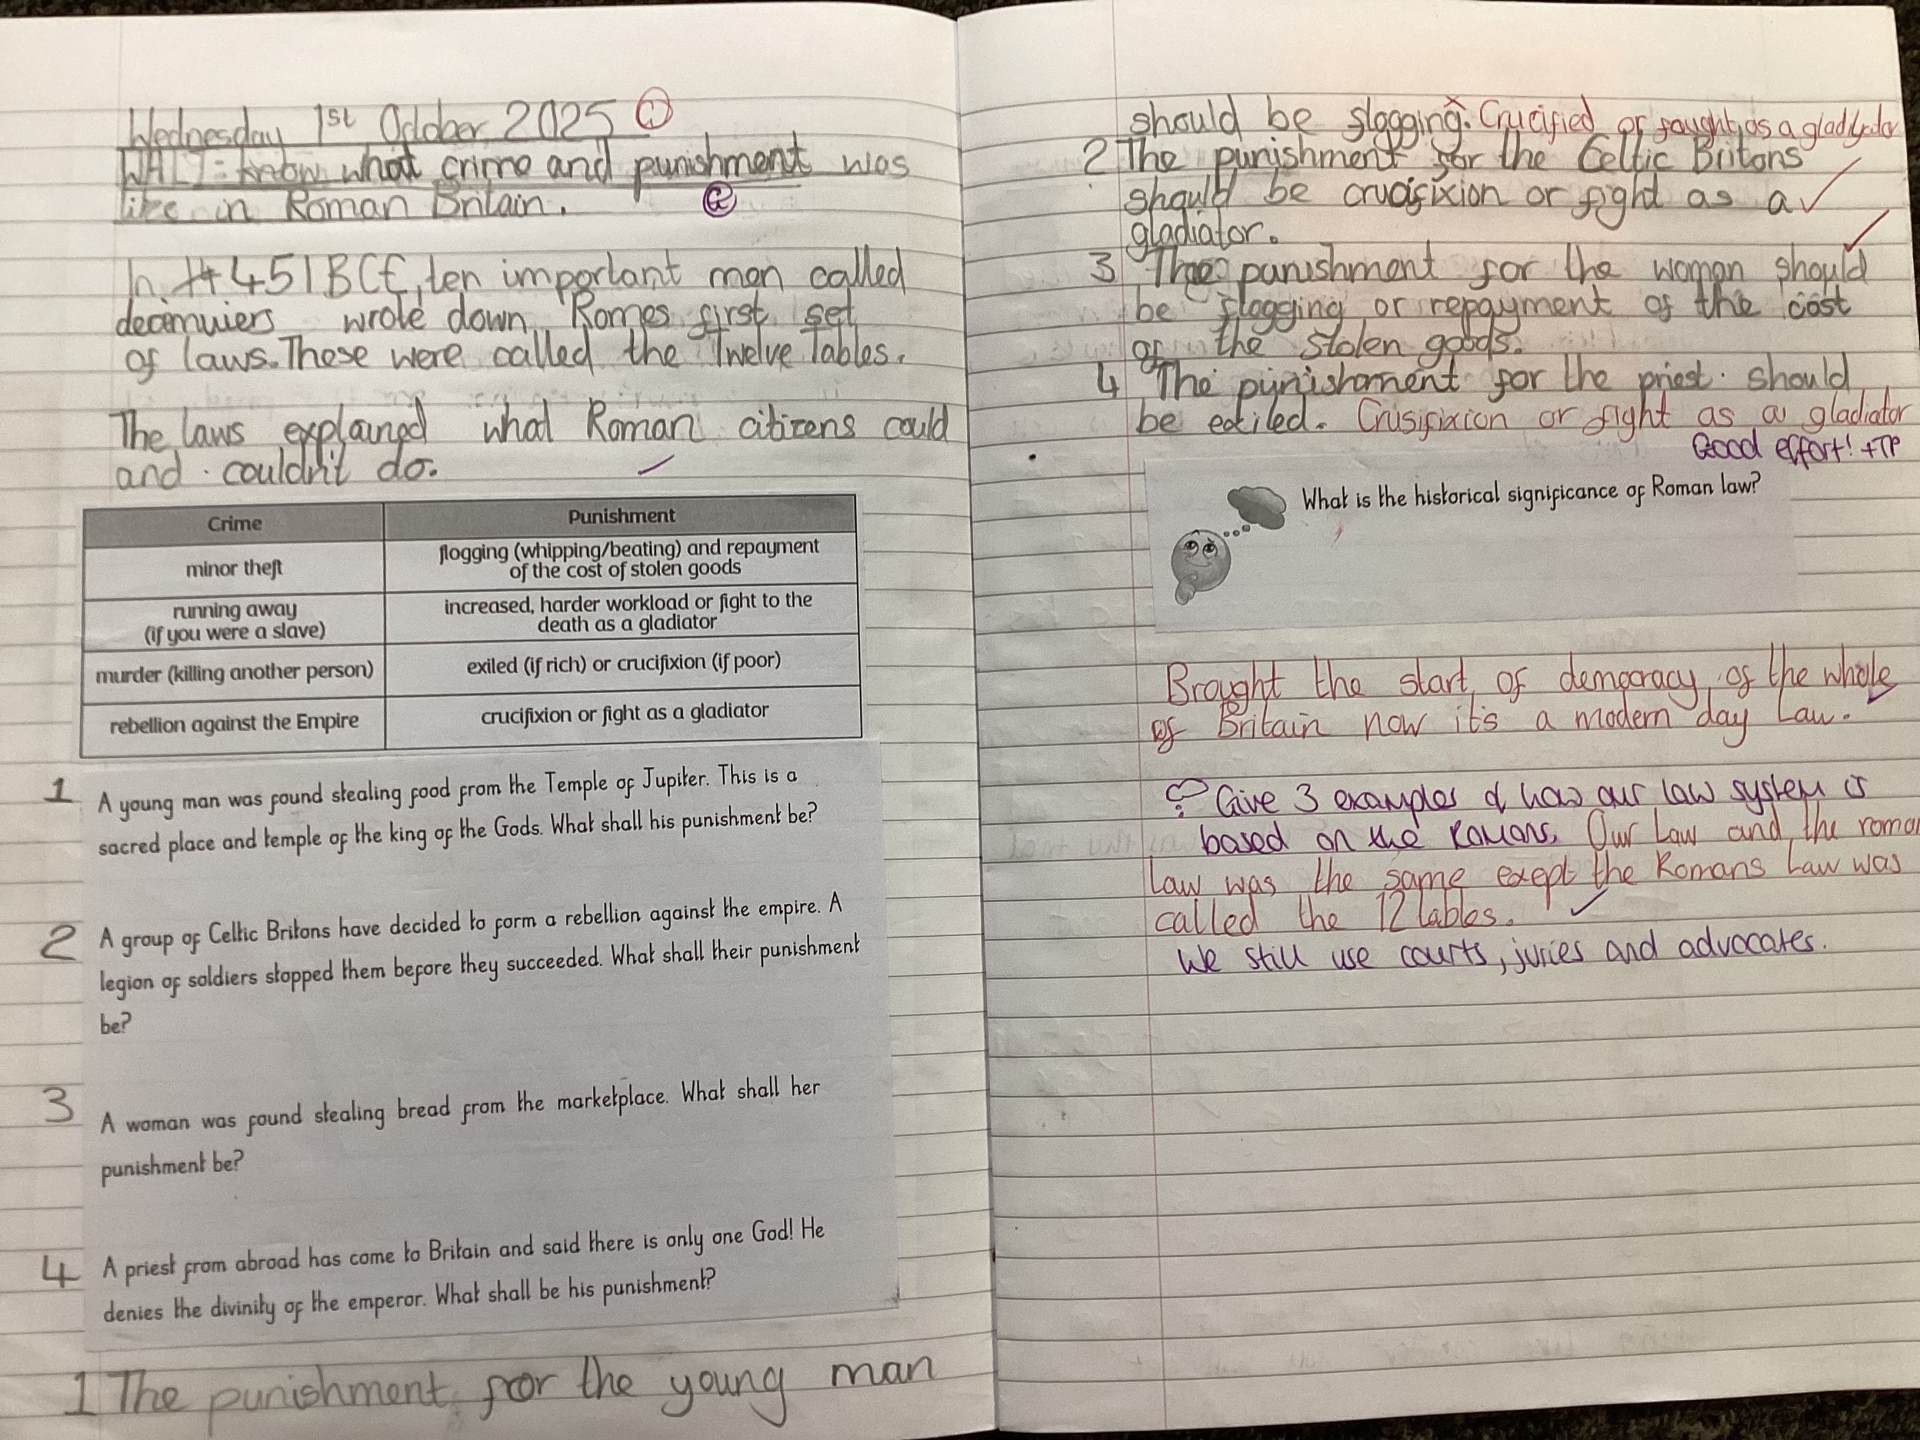 Wednesday 1st October 2025
WALT: know what crime and punishment was
like in Roman Britain.
In 451BCE, ten important men called
decemuiers wrote down Romes first set
of laws. These were called the Twelve Tables.
The laws explained what Roman citizens could
and couldn't do.
Crime Punishment
minor theft flogging (whipping/beating) and repayment
of the cost of stolen goods
running away increased, harder workload or fight to the
(if you were a slave) death as a gladiator
murder (killing another person) exiled (if rich) or crucifixion (if poor)
rebellion against the Empire crucifixion or fight as a gladiator
1 A young man was found stealing food from the Temple of Jupiter. This is a
sacred place and temple of the king of the Gods. What shall his punishment be?
2 A group of Celtic Britons have decided to form a rebellion against the empire. A
legion of soldiers stopped them before they succeeded. What shall their punishment
be?
3 A woman was found stealing bread from the marketplace. What shall her
punishment be?
4 A priest from abroad has come to Britain and said there is only one God! He
denies the divinity of the emperor. What shall be his punishment?
1 The punishment for the young man
should be slogging. Crucified or fought as a
2 The punishment for the Celtic Britons
should be crucifixion or fight as a
gladiator.
3 The punishment for the woman should
be flogging or repayment of the cost
of the stolen goods.
4 The punishoment for the priest should
be exiled. Crusifixion or fight as a gladiator
Good effort! +TP
What is the historical significance of Roman law?
Brought the start of democracy of the whole
of Britain now it's a modern day Law.
? Give 3 examples of how our law system is
based on the Romans. Our Law and the roman
law was the same exept the Romans Law was
called the 12 tables.
We still use courts, juries and advocates.